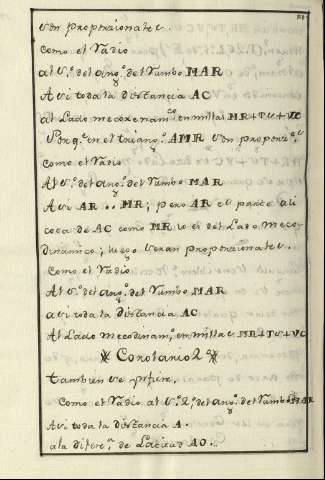 son proporzionales.
Como el Radio
al S.º del ang.º del Rumbo MAR
Asi toda la distancia AC
al Lado mecodinam.co en millas MR+TS+VC
Porq.e en el triang.º AMR son proporz.s
Como el Radio
Al S.º del Ang.º del Rumbo MAR
Asi AR .. MR; pero AR es parte ali
cota de AC como MR lo es del Lado Mecoy
Dinamico; luego seran proporzionales.
Como el Radio
Al S.º del ang.º del Rumbo MAR
asi toda la distancia AC
Al Lado mecodinam.º en millas MR+TS+VC
Corolario 2
tambien se infiere,
Como el Radio al S.º 2.º del ang.º del Rumbo MAR
Asi toda la distancia A.
a la difere.a de Latitud AO.